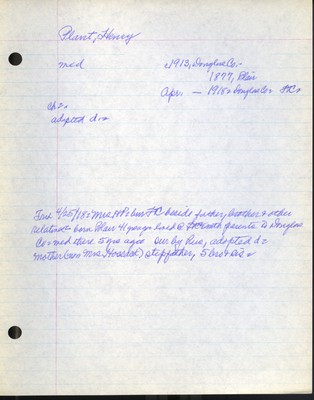 Plant, Henry
md c1913, Douglas Co.-
1877, Blair
Apr. — 1918 = Douglas Co FC
ch =
adopted d. =
Trib 4/25/18: Mrs HP bur FC beside father, brother & other
relatives born Blair 41 years lived @ FC with parents to Douglas
Co md there 5 yrs ago sur by hus, adopted d =
mother (now Mrs ) stepfather, 5 bro & sis